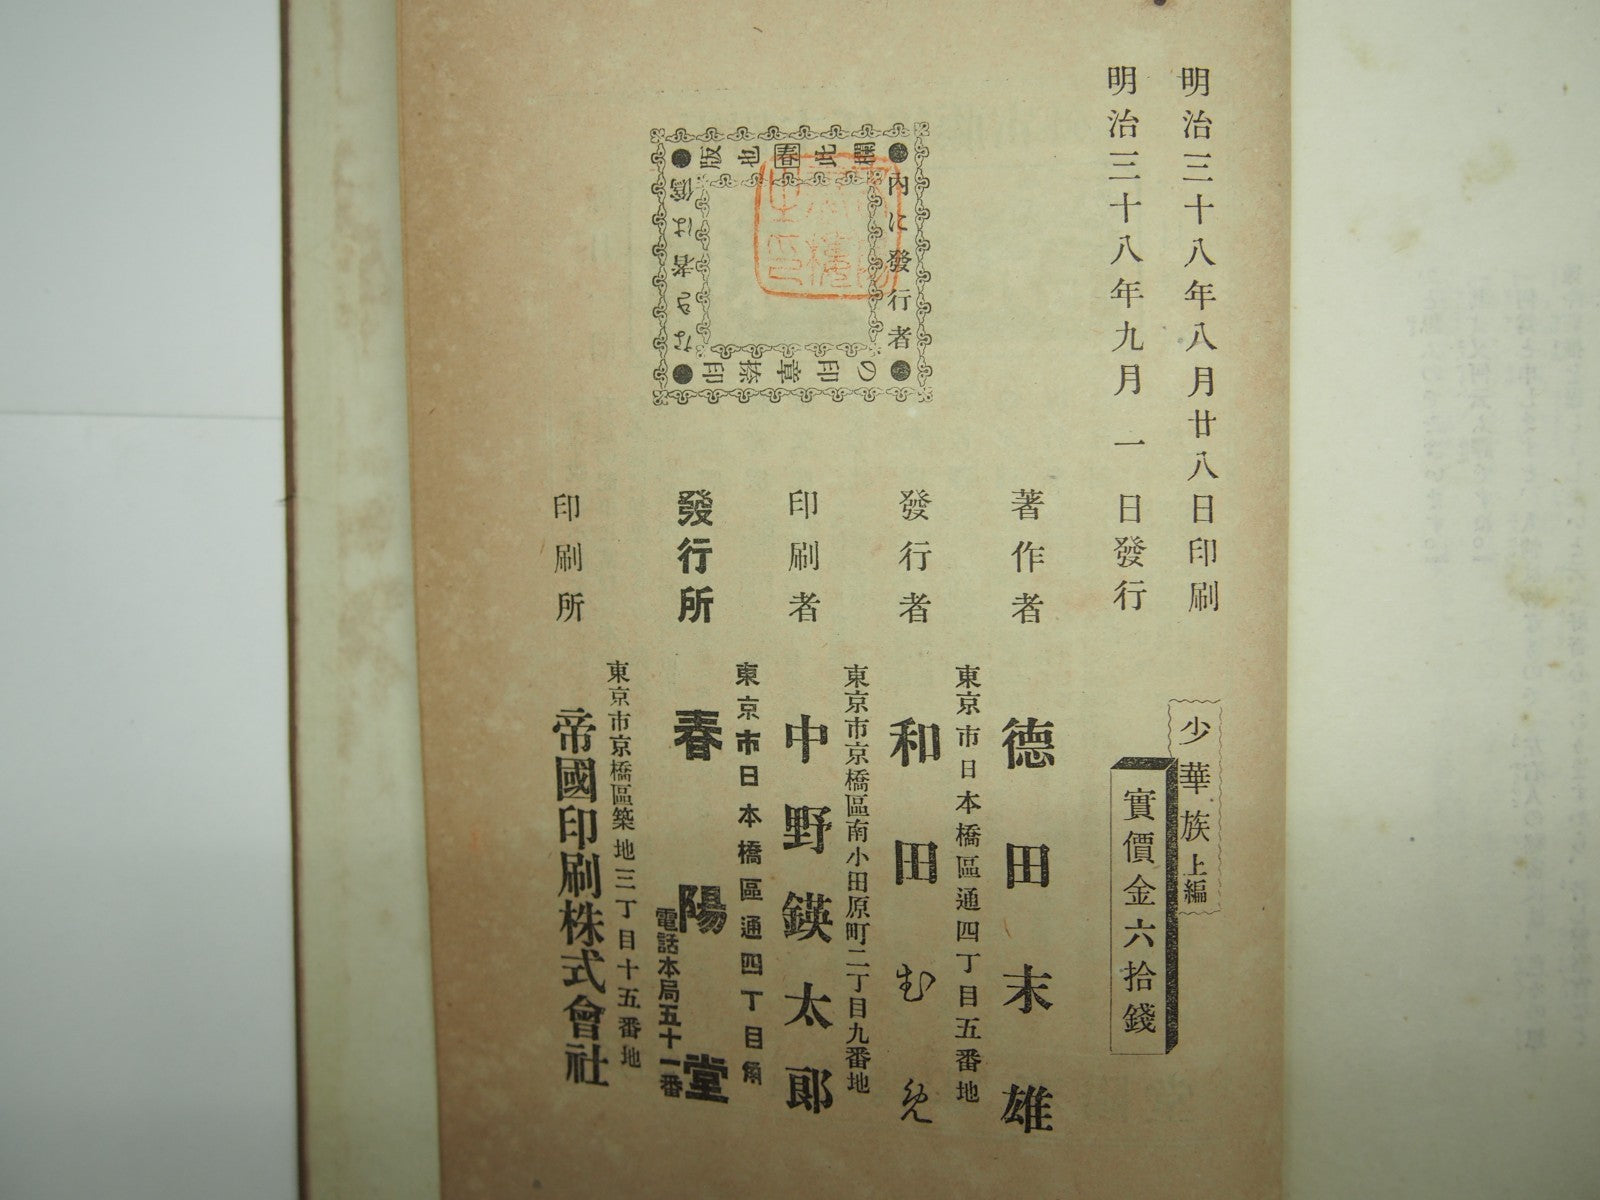 明治三十八年八月廿八日印刷
明治三十八年九月一日發行
少華族上編
實價金六拾錢
著作者 德田末雄
東京市日本橋區通四丁目五番地
發行者 和田む免
東京市京橋區南小田原町二丁目九番地
印刷者 中野鍈太郎
東京市日本橋區通四丁目角
發行所 春陽堂
電話本局五十一番
東京市京橋區築地三丁目十五番地
印刷所 帝國印刷株式會社
●内に發行者
●の印章捺印
●なき者は僞
版也春